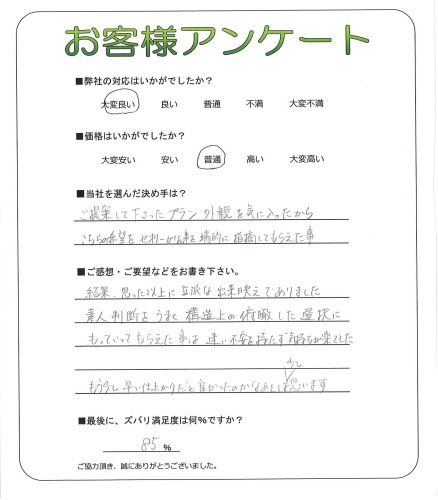 お客様アンケート
■弊社の対応はいかがでしたか？
大変良い 良い 普通 不満 大変不満
■価格はいかがでしたか？
大変安い 安い 普通 高い 大変高い
■当社を選んだ決め手は？
ご提案して下さったプラン 外観を気に入ったから
こちらの希望を 端的に 指摘してもらえた事
■ご感想・ご要望などをお書き下さい。
結果、思った以上に立派な出来映えでありました
素人判断をうまく構造上の俯瞰した選択に
もっていってもらえた事は 迷い不安を持たず気持ちが楽でした
少し
もう少し早い仕上がりだと良かったのかな 思います
■最後に、ズバリ満足度は何%ですか？
85 %
ご協力頂き、誠にありがとうございました。